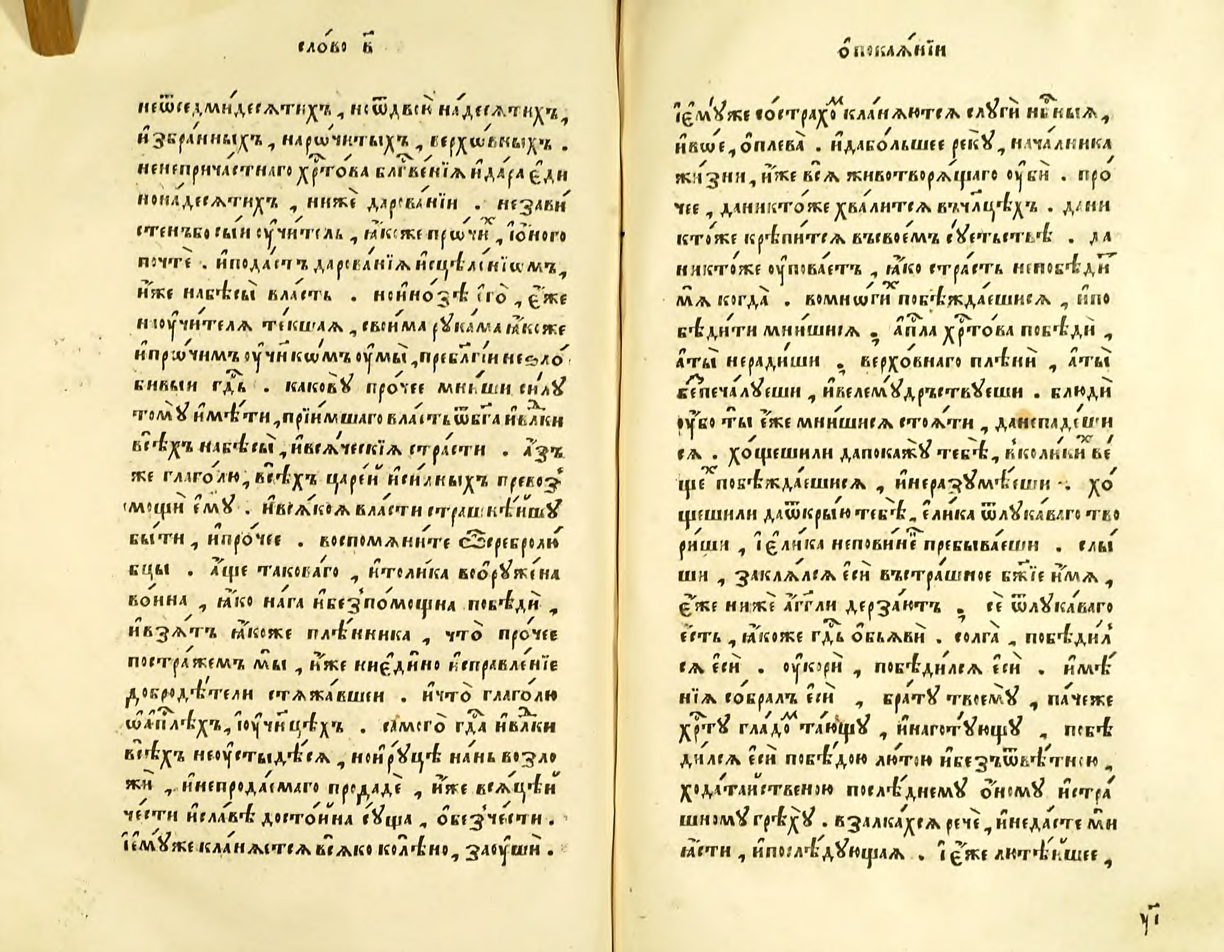 сло́во в҃
неѿседми́десѧтихъ , неѿдвою̀ на́десѧтихъ ,
и҆збра́нныхъ , наро́читыхъ , верхо́вныхъ .
ненеприча́стнаго хрⷭ҇това блгⷭ҇ве́нїѧ и҆да́ра є҆ди
нона́десѧтихъ , нижѐ дарова́нїи . незави́
стенъбо сы́и ᲂу҆чи́тель , ꙗ҆́коже прѡ́чиⷯ , і҆о́ного
почтѐ . и҆пода́стъ дарова́нїѧ и҆сцѣле́нїѡмъ ,
и҆́же набѣ́сы вла́сть . нои҆но́зѣ є҆го̀ , є҆́же
наᲂу҆чи́телѧ те́кшаѧ , свои́ма рꙋка́ма ꙗ҆́коже
и҆прѡ́чимъ ᲂу҆ч҃нкѡ́мъ ᲂу҆мы̀ , пребл҃гі́и неѕло́
бивыи гдⷭ҇ь . какову̀ про́чее мни́ши си́лꙋ
томꙋ̀ и҆мѣ́ти , прїи́мшаго вла́сть ѿбг҃а и҆влⷣки
всѣ́хъ набѣ́сы , и҆всѧ́ческїѧ стра́сти . а҆́зъ
же глаго́лю , всѣ́хъ царе́й и҆си́лныхъ превоз̾
мощѝ є҆мꙋ̀ . и҆всѧ́коѧ вла́сти страшнѣ́йшꙋ
бы́ти , и҆про́чее . воспомѧни́те ѿсребролю́
бцы . а҆́ще такова́го , и҆толи́ка воѡ҆рꙋже́на
во́ина , ꙗ҆́ко на́га и҆без̾по́мощна побѣдѝ ,
и҆взѧ́тъ ꙗ҆́коже плѣ́нника , что̀ про́чее
постра́жемъ мы̀ , и҆́же ниє҆ди́но и҆справле́нїе
добродѣ́тели стѧжа́вшеи . и҆что̀ глаго́лю
ѡ҆а҆пⷭ҇лѣхъ , і҆ᲂу҆ч҃нцѣхъ . самого̀ гдⷭ҇а и҆влⷣки
всѣ́хъ неᲂу҆стыдѣ́сѧ , нои҆рꙋ́цѣ на́нь возло
жѝ , и҆непрода́емаго продадѐ , и҆́же всѧ́цѣй
че́сти и҆сла́вѣ досто́йна сꙋ́ща , ѻ҆без̾че́сти .
і҆є҆мꙋ́же кла́нѧетсѧ всѧ́ко колѣ́но , заᲂу҆шѝ .
ѻ҆покаѧ́нїи
і҆є҆мꙋ́же состра́хоⷨ кла́нѧютсѧ слꙋгѝ нбⷭ҇ныѧ ,
и҆всѐ , ѻ҆плева̀ . и҆дабо́льшее рекꙋ̀ , нача́лника
жи́зни , и҆́же всѧ̀ животворѧ́щаго ᲂу҆бѝ . про́
чее , даникто́же хва́литсѧ въчл҃цѣхъ . дани
кто́же крѣпи́тсѧ въсвое́мъ є҆стьствѣ̀ . да
никто́же ᲂу҆пова́етъ , ꙗ҆́ко стра́сть непобѣди́
мѧ когда̀ . вомно́гиⷯ побѣжда́ешисѧ , и҆по
бѣди́ти мни́шисѧ ; а҆пⷭ҇ла хрⷭ҇това побѣдѝ ,
а҆ты̀ неради́ши ; верхо́внаго плѣнѝ , а҆ты̀
беспеча́лꙋеши , и҆велемꙋ́дръствꙋеши . блюдѝ
ᲂу҆̀бо ты̀ є҆́же мни́шисѧ стоѧ́ти , данепаде́ши
сѧ . хо́щешили дапокажꙋ̀ тебѣ̀ , вколи́киⷯ ве́
щеⷯ побѣжда́ешисѧ , и҆неразꙋмѣ́еши . хо́
щешили даѿкры́ю тебѣ̀ , є҆ли́ка ѿлꙋка́ваго тво
ри́ши , і҆є҆ли́ка непови́ненⸯ пребыва́еши . слы́
ши , заклѧ́лсѧ є҆сѝ въстра́шное бж҃їе и҆́мѧ ,
є҆́же нижѐ а҆́гг҃ли дерза́ютъ ; сѐ ѿлꙋка́ваго
є҆́сть , ꙗ҆́коже гдⷭ҇ь ѻ҆бьѧвѝ . солга̀ , побѣди́л̾
сѧ є҆сѝ . ᲂу҆корѝ , побѣди́лсѧ є҆сѝ . и҆мѣ́
нїѧ собра́лъ є҆сѝ , бра́тꙋ твоемꙋ̀ , па́чеже
хрⷭ҇тꙋ гла́доⷨ та́ющꙋ , и҆наготꙋ́ющꙋ , побѣ
ди́лсѧ є҆сѝ побѣ́дою лю́тою и҆безъѿвѣ́тною ,
хода́тайственою послѣ́днемꙋ ѻ҆́номꙋ и҆стра́
шномꙋ грѣ́хꙋ . взалка́хсѧ речѐ , и҆неда́сте мѝ
ꙗ҆́сти , и҆послѣ́дꙋющаѧ . і҆є҆́же лютѣ́йшее ,
у҃і